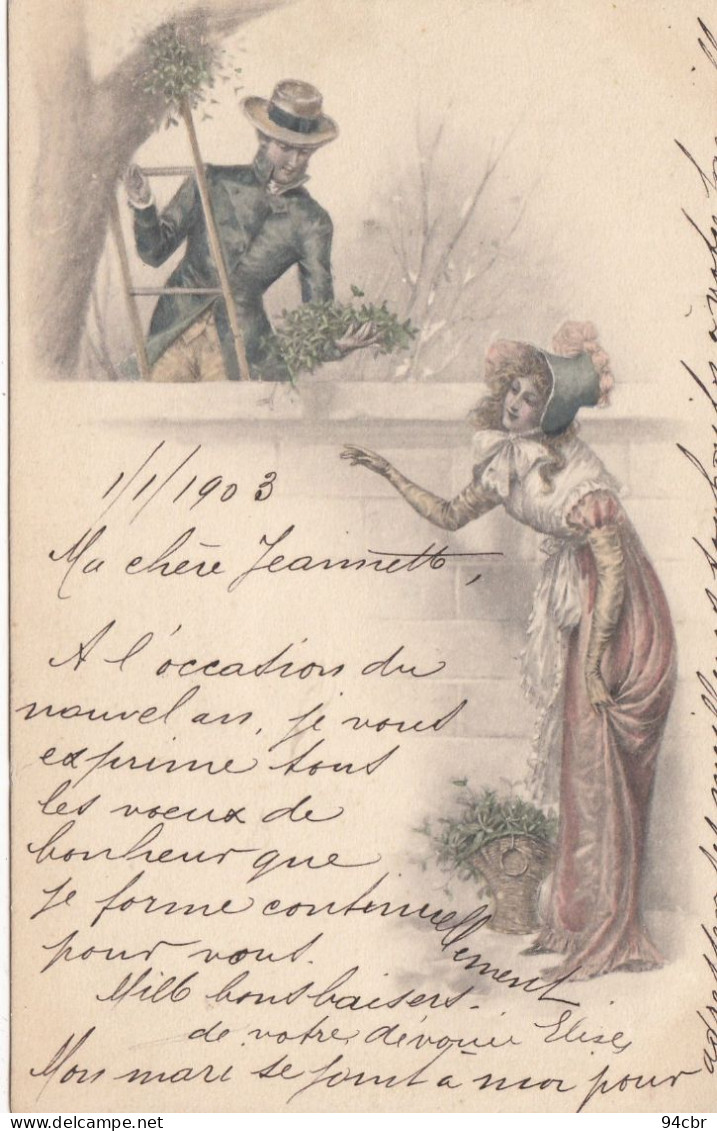 1/1/1903
Ma chère Jeannette,
A l'occasion du
nouvel an, je vous
exprime tous
les voeux de
bonheur que
je forme continuellement
pour vous.
Mille bons baisers.
de votre dévouée Elise,
Mon mari se joint à moi pour
adresser les meilleurs souhaits à votre
Delcampe.net
94cbr